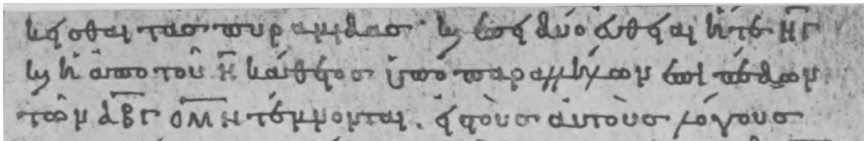 κεῖσθαι τὰς πυραμίδας· καὶ ἐπεὶ δύο εὐθεῖαι ἥ τε ΗΓ
καὶ ἡ ἀπὸ τοῦ Η κάθετος ὑπὸ παραλλήλων ἐπιπέδων
τῶν ΑΒΓ ΟΜΝ τέμνονται, εἰς τοὺς αὐτοὺς λόγους